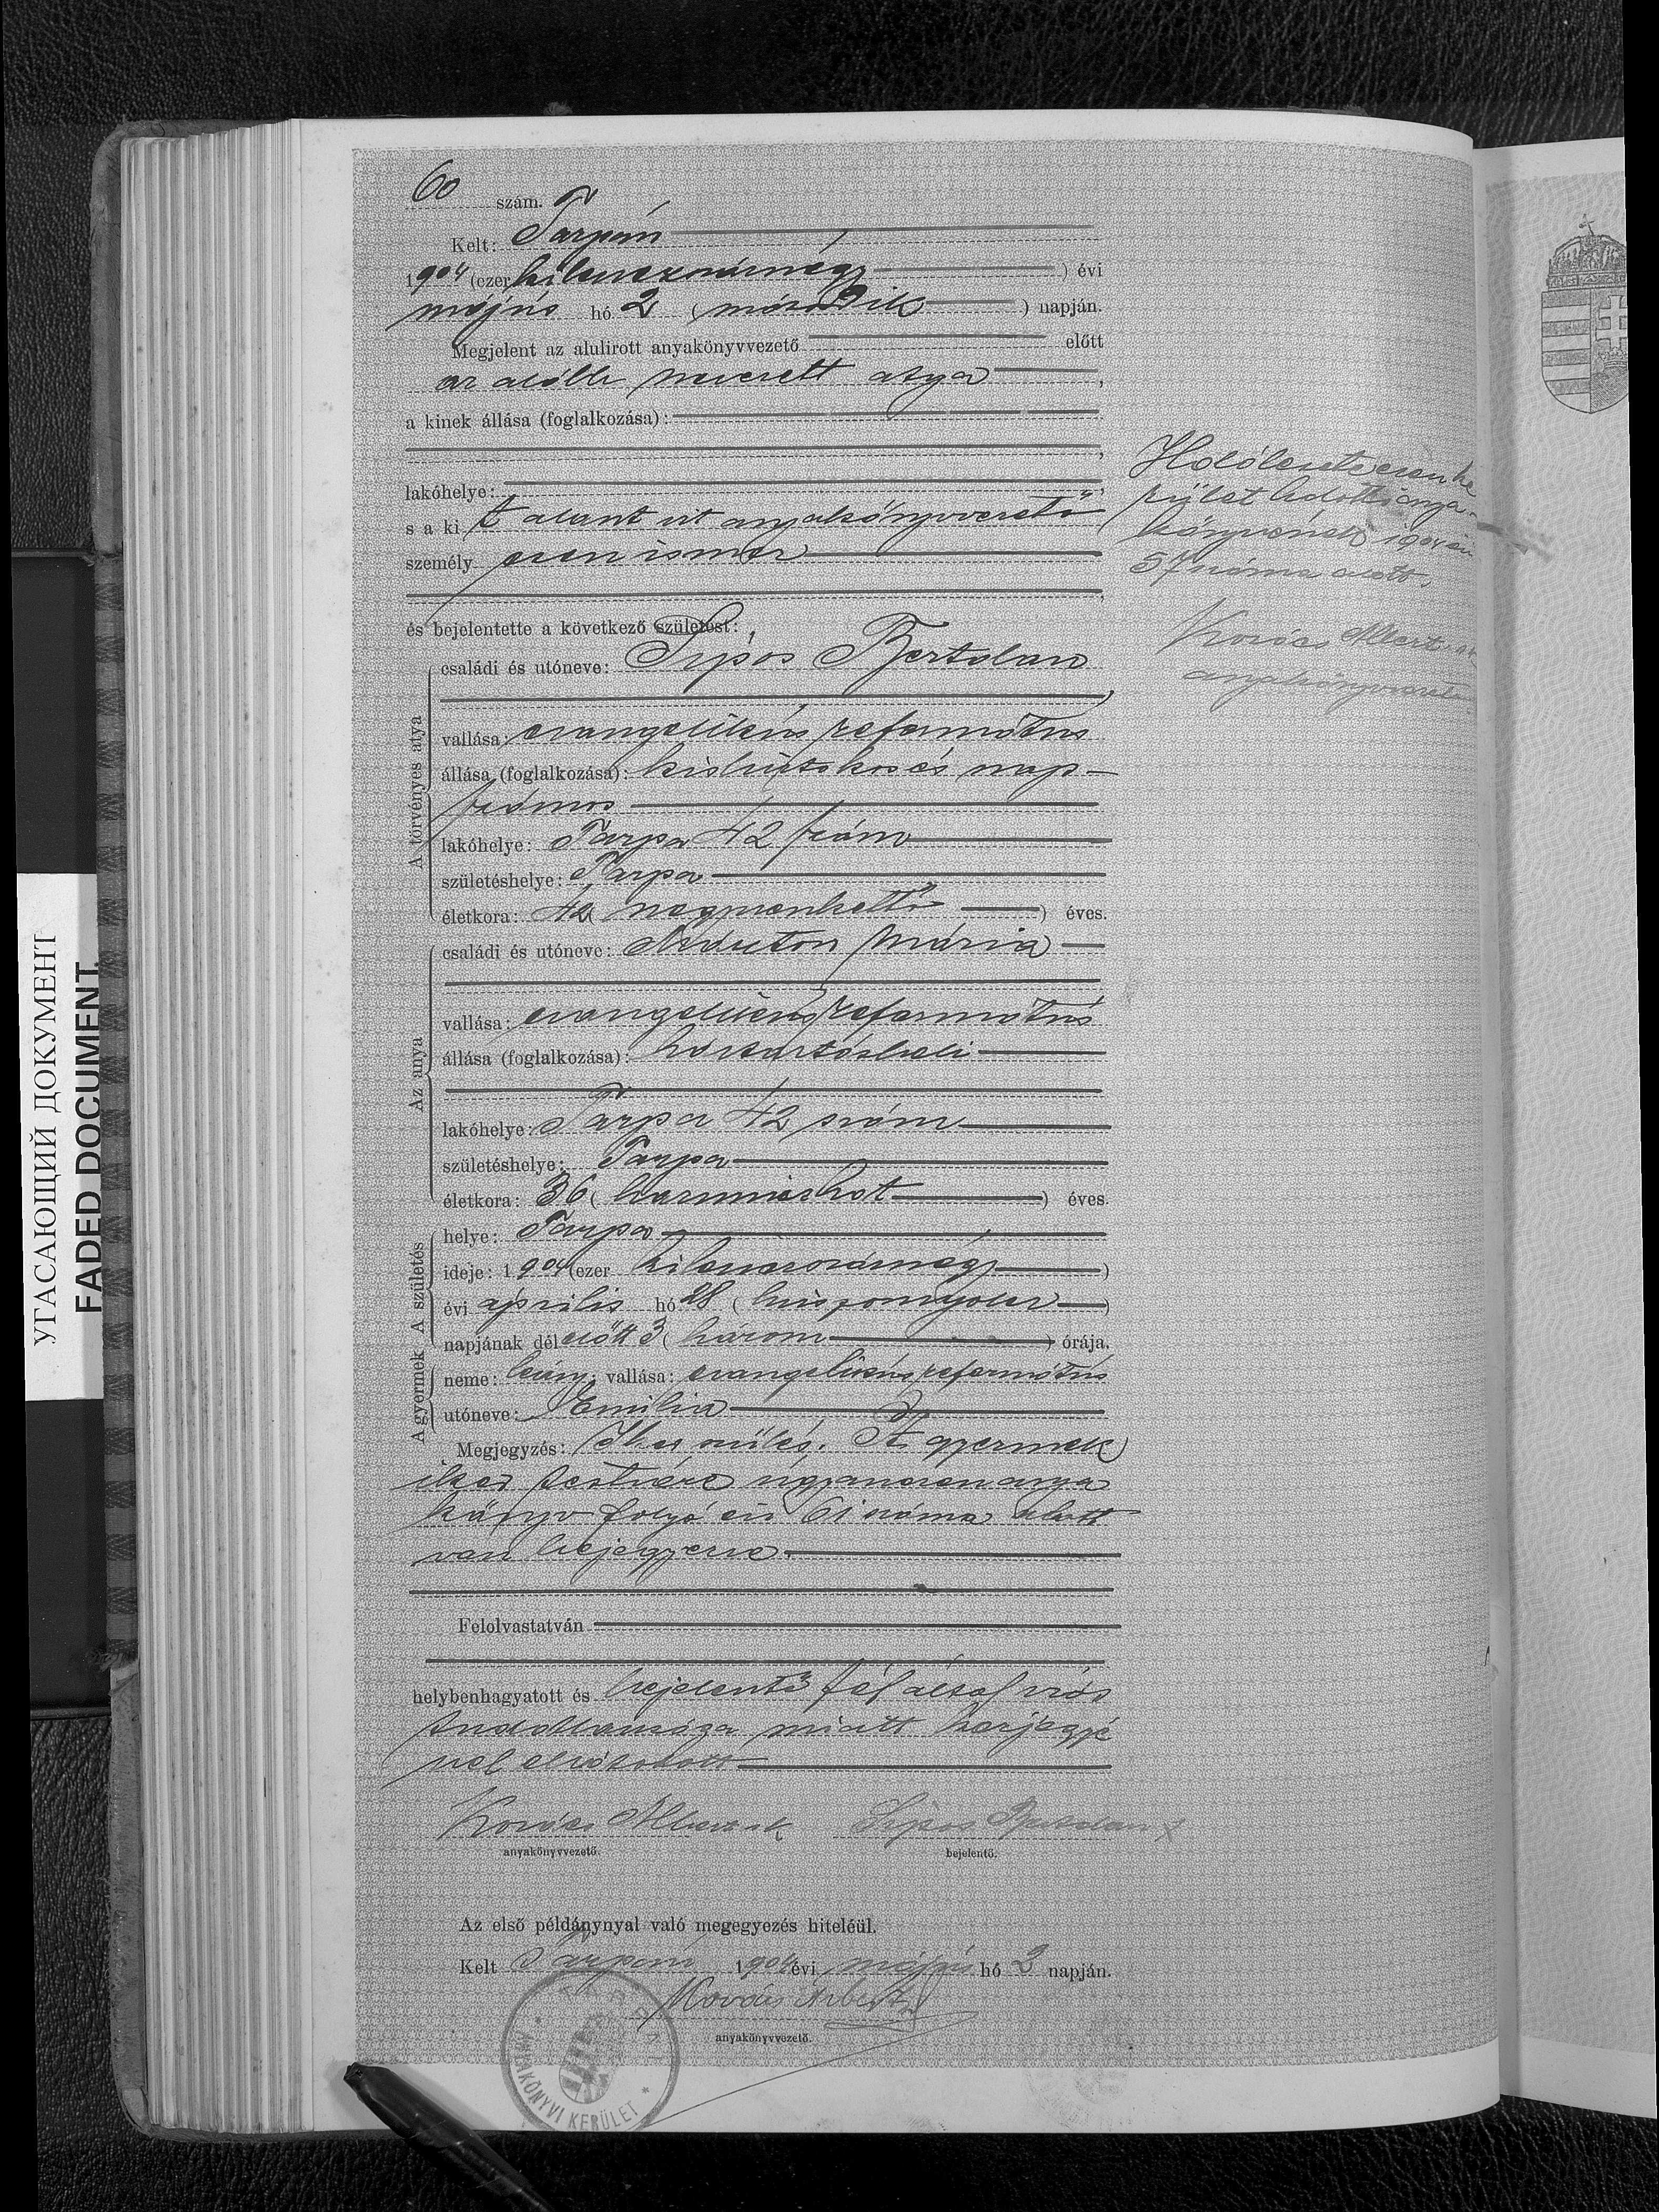 60 szám.
Kelt: Tarpán
1904 (ezer kilenczszáznégy ) évi
május hó 2 ( második ) napján.
Megjelent az alulirott anyakönyvvezető előtt
az alább nevezett atya ,
a kinek állása (foglalkozása):
lakóhelye:
s a kit alant irt anyakönyvvezető
személyesen ismer
és bejelentette a következő születést:
A törvényes atya
családi és utóneve: Sipos Bertalan
vallása: evangelikus református
állása (foglalkozása): kisbirtokos és nap-
számos
lakóhelye: Tarpa 42 szám
születéshelye: Tarpa
életkora: 42 ( negyvenkettő ) éves.
Az anya
családi és utóneve: Mária
vallása: evangelikus református
állása (foglalkozása): háztartásbeli
lakóhelye: Tarpa 42 szám
születéshelye: Tarpa
életkora: 36 ( harminczhat ) éves.
A születés
helye: Tarpa
ideje: 1904 (ezer kilenczszáznégy )
évi április hó 28 ( huszonnyolcz )
napjának délelőtt 3 ( három ) órája.
A gyermek
neme: leány; vallása: evangelikus református
utóneve: Emilia
Megjegyzés: Iker szülés. A gyermek
iker testvére ugyanezen anya
könyv folyó évi 61 száma alatt
van bejegyezve.
Felolvastatván
helybenhagyatott és bejelentő fél által irás
tudatlansága miatt kézjegyé
vel elláttatott
Kovács Albert sk Sipos Bertalan x
anyakönyvvezető. bejelentő.
Az első példánynyal való megegyezés hiteléül.
Kelt Tarpán 1904 évi május hó 3 napján.
Kovács Albert
anyakönyvvezető.
TARPA
ANYAKÖNYVI KERÜLET
Halálesete ezen ke
rület halotti anya-
könyvének 1904 évi
57 száma alatt.
Kovács Albert sk
anyakönyvvezető
УГАСАЮЩИЙ ДОКУМЕНТ
FADED DOCUMENT